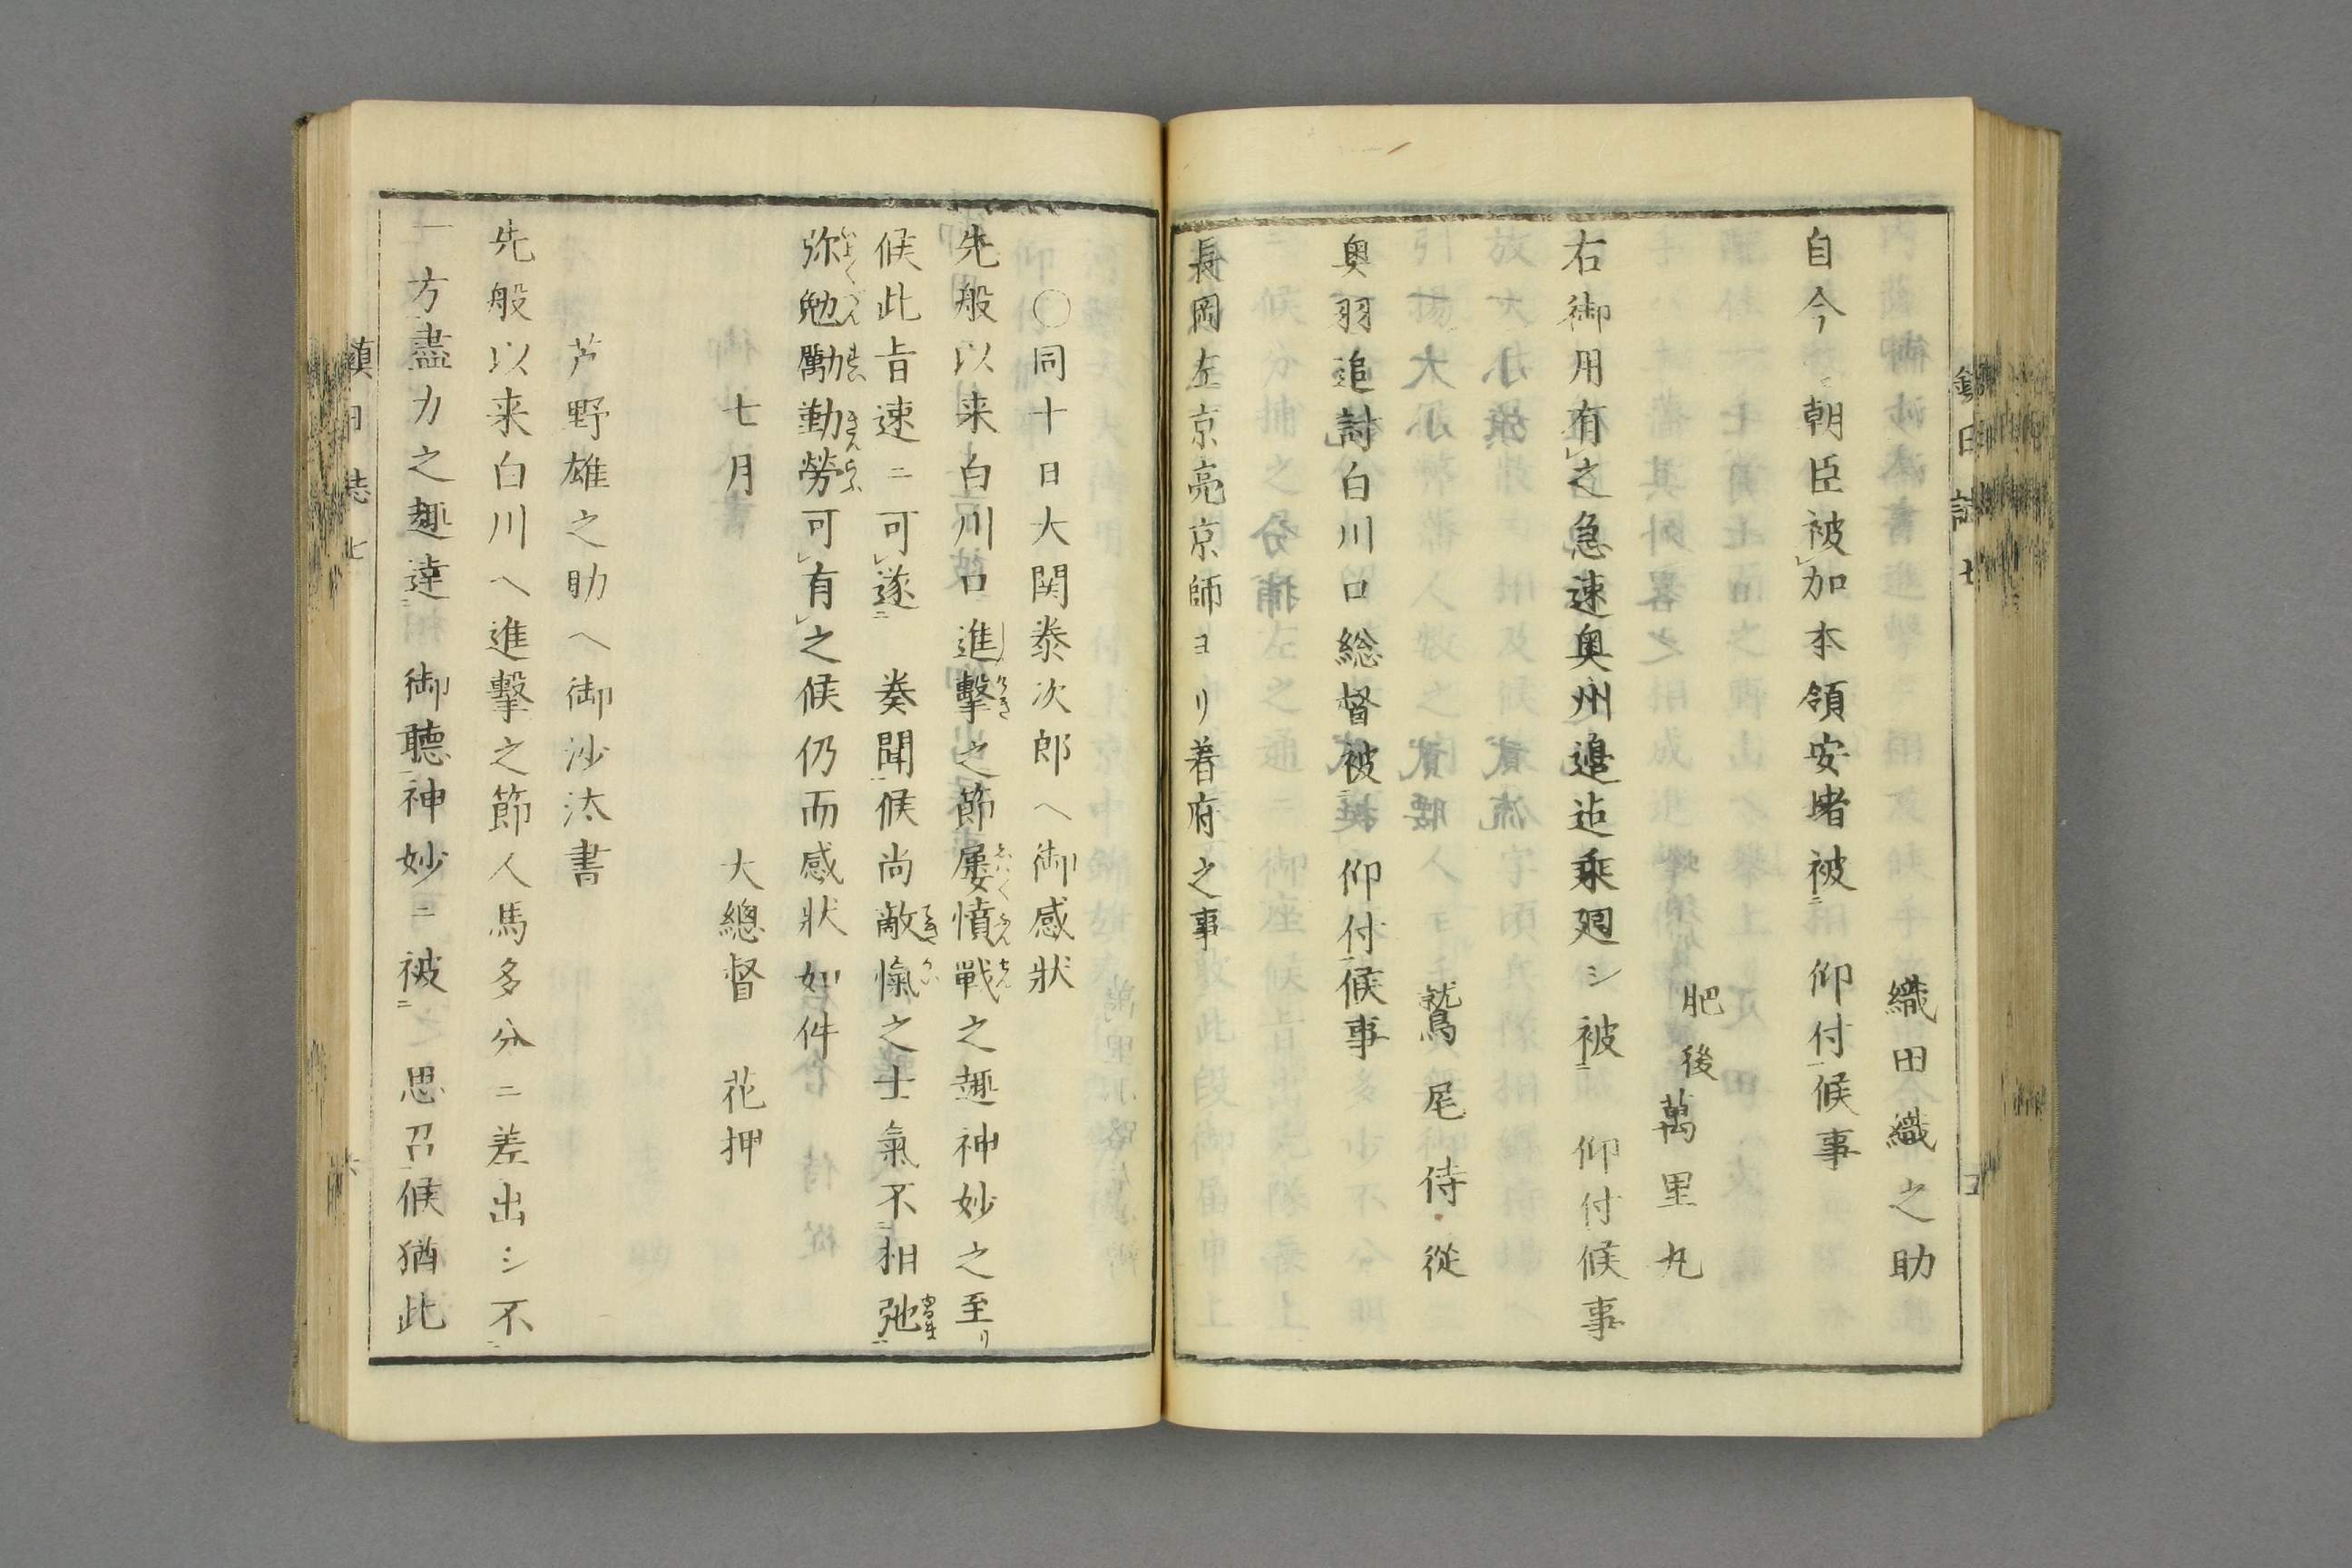 織田織之助
自今 朝臣被加本領安堵被 仰付候事
肥後
萬里丸
右御用有之急速奥州邉迠乗廻シ被 仰付候事
鷲尾侍從
奥羽追討白川口総督被 仰付候事
長岡左京亮京師ヨリ着府之事
鎮日誌七
〇同十日大関泰次郎ヘ御感狀
先般以来白川口進撃之節屢憤戰之趣神妙之至リ
候此旨速ニ可遂 奏聞候尚敵愾之士氣不相弛
弥勉勵勤勞可有之候仍而感狀如件
七月 大總督 花押
芦野雄之助ヘ御沙汰書
先般以来白川ヘ進撃之節人馬多分ニ差出シ不
一方盡力之趣達 御聴神妙ニ被 思召候猶此
鎮日誌七 六